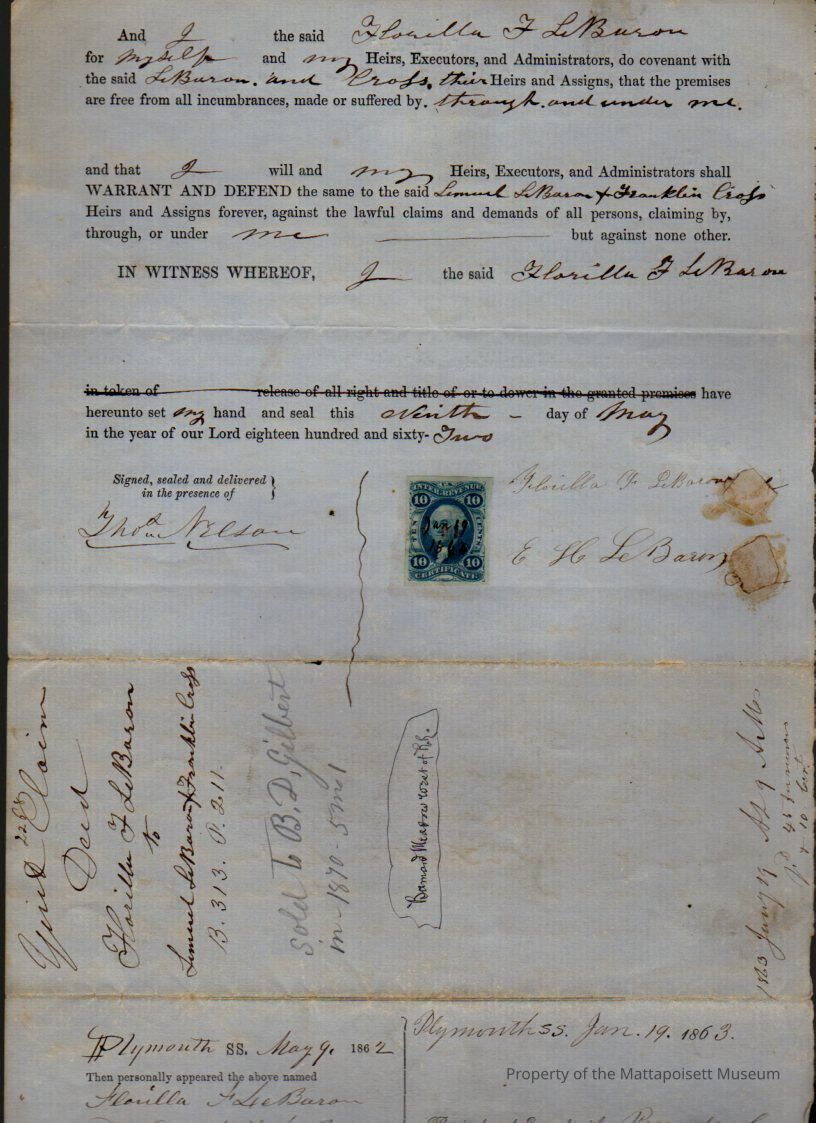 And I the said Florilla F LeBaron
for myself and my Heirs, Executors, and Administrators, do covenant with
the said LeBaron. and Cross, their Heirs and Assigns, that the premises
are free from all incumbrances, made or suffered by, through. and under me.
and that I will and my Heirs, Executors, and Administrators shall
WARRANT AND DEFEND the same to the said Lemuel LeBaron & Franklin Cross
Heirs and Assigns forever, against the lawful claims and demands of all persons, claiming by,
through, or under me but against none other.
IN WITNESS WHEREOF, I the said Florilla F LeBaron
in token of release of all right and title of or to dower in the granted premises have
hereunto set my hand and seal this Ninth - day of May
in the year of our Lord eighteen hundred and sixty-Two
Signed, sealed and delivered
in the presence of
Thos Nelson
INTER. REVENUE
10 10
TEN CENTS
Jan 19
1863
10 10
CERTIFICATE
Florilla F LeBaron
E H LeBaron
Quit Claim
Deed
Florilla F LeBaron
to
Lemuel LeBaron & Franklin Cross
B. 313. P. 211.
Sold to B. D. Gilbert
in 1870 -
Barnard Meadow west of R.R.
1863 Jany 19 At 9 A.M.
Plymouth SS. May 9, 1862
Then personally appeared the above named
Florilla F LeBaron
Plymouth SS. Jan. 19. 1863.
Property of the Mattapoisett Museum